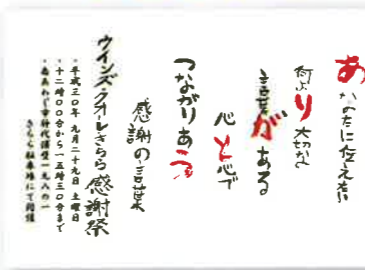 あなたに伝えたい
何より大切な
言葉がある
心と心で
つながりあう
感謝の言葉
ウインズ・クオーレきらら感謝祭
・平成三〇年 九月二十九日 土曜日
・十二時〇〇分から一五時三〇分まで
・南あわじ市神代浦壁一九八の一
きらら駐車場にて開催